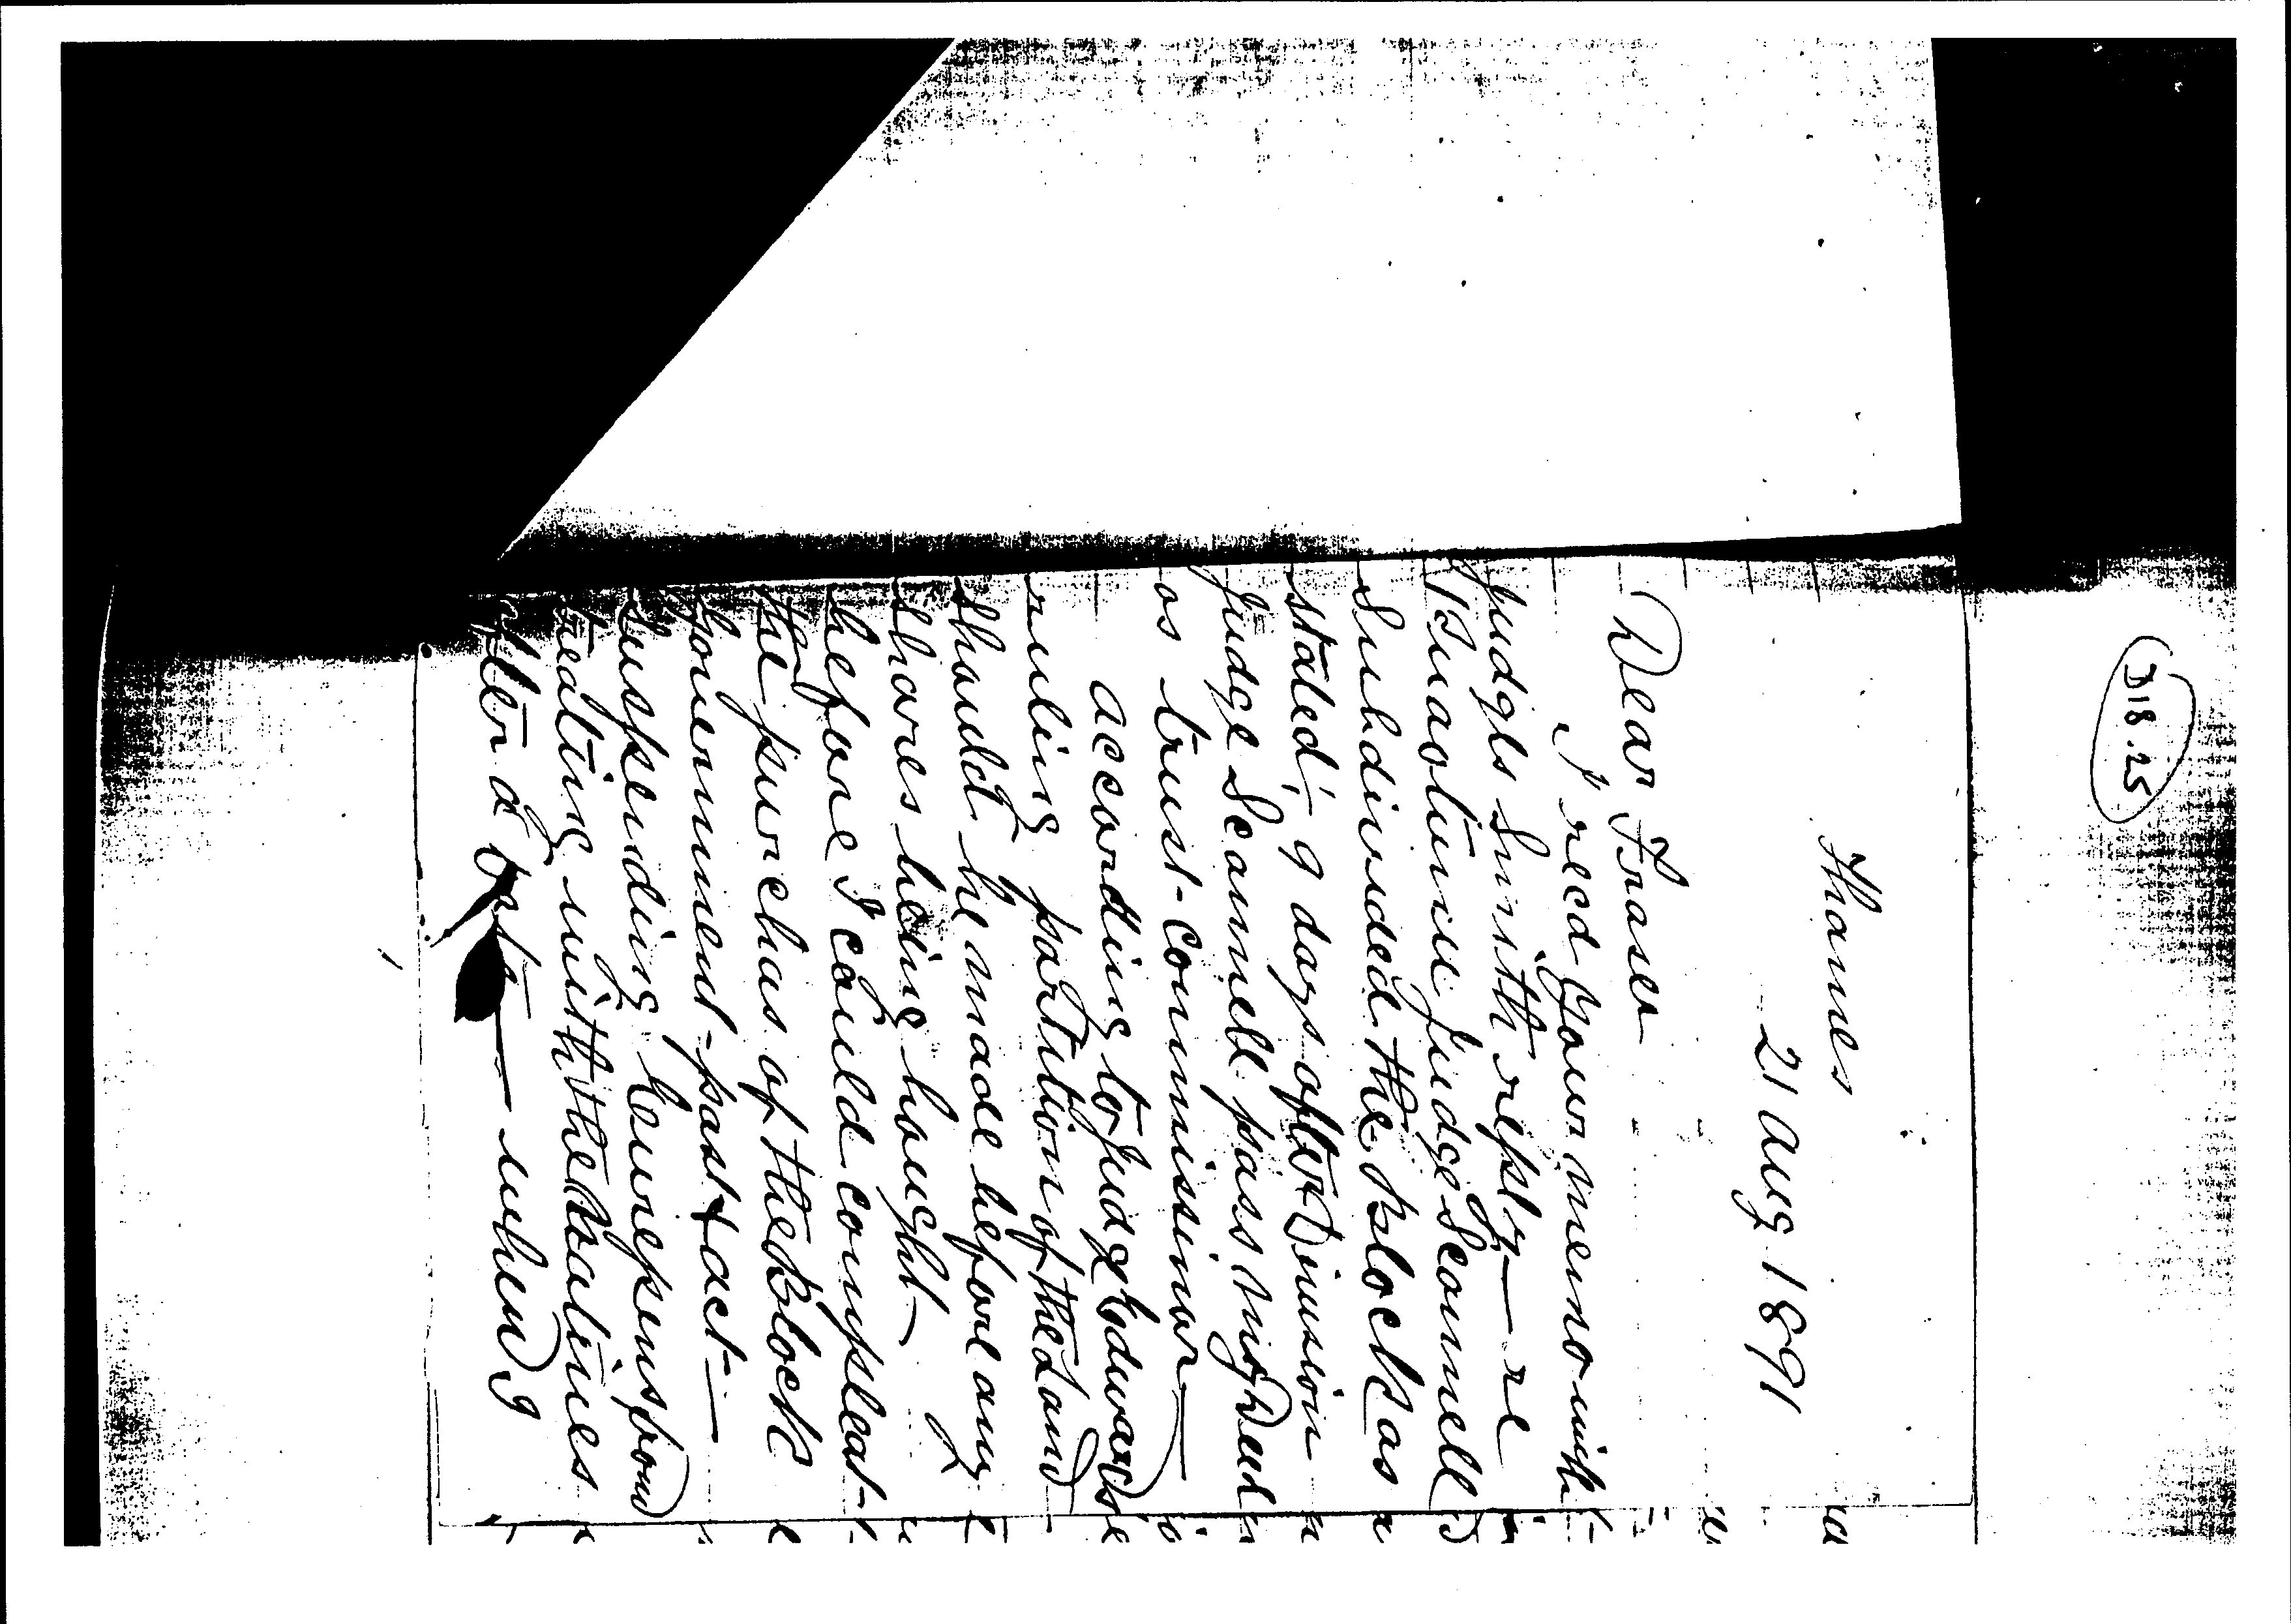 D18.25
Thames
21 Aug 1891
Dear Fraser
I recd your memo with
Judges Smith reply — re
Judge Scannell
Subdivided the Block as
stated, 9 days after Division
Judge Scannell pass my Deed
as trust-commissinor —
according to Judge Edwards
ruling partition of the Land
should be made before any
shares being bought —
before I could compleat
the purchas of the Block
Government past act —
suspending
treating with the Natives
when I